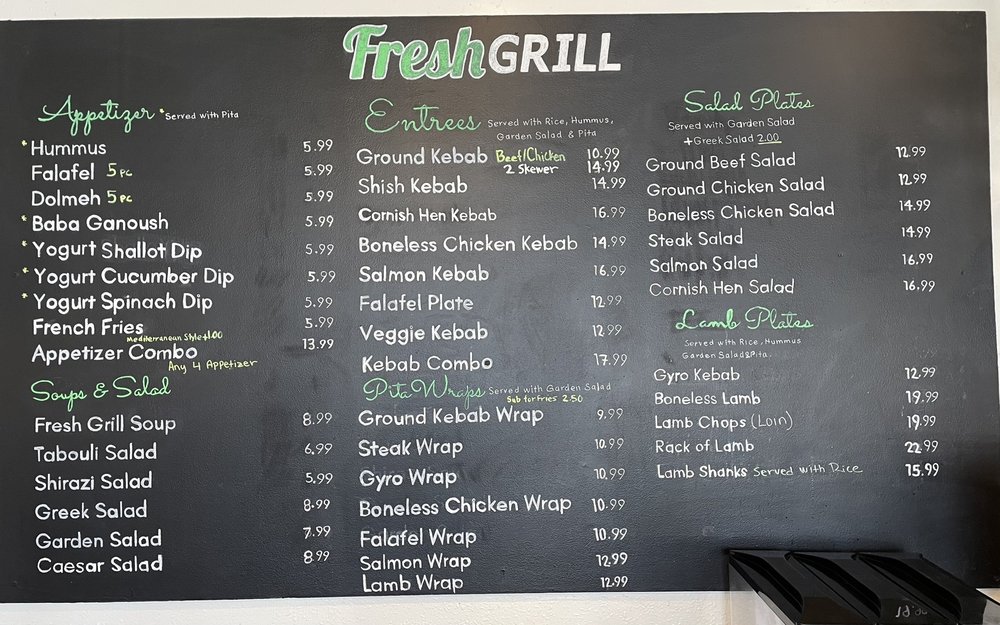 Fresh GRILL
Appetizer *Served with Pita
*Hummus 5.99
Falafel 5 pc 5.99
Dolmeh 5 pc 5.99
*Baba Ganoush 5.99
*Yogurt Shallot Dip 5.99
*Yogurt Cucumber Dip 5.99
*Yogurt Spinach Dip 5.99
French Fries 5.99
Mediterranean Style +1.00
Appetizer Combo 13.99
Any 4 Appetizer
Soups & Salad
Fresh Grill Soup 8.99
Tabouli Salad 6.99
Shirazi Salad 5.99
Greek Salad 8.99
Garden Salad 7.99
Caesar Salad 8.99
Entrees Served with Rice, Hummus,
Garden Salad & Pita
Ground Kebab Beef/Chicken 10.99
2 Skewer 14.99
Shish Kebab 14.99
Cornish Hen Kebab 16.99
Boneless Chicken Kebab 14.99
Salmon Kebab 16.99
Falafel Plate 12.99
Veggie Kebab 12.99
Kebab Combo 17.99
Pita Wraps Served with Garden Salad
Sub for fries 2.50
Ground Kebab Wrap 9.99
Steak Wrap 10.99
Gyro Wrap 10.99
Boneless Chicken Wrap 10.99
Falafel Wrap 10.99
Salmon Wrap 12.99
Lamb Wrap 12.99
Salad Plates
Served with Garden Salad
+Greek Salad 2.00
Ground Beef Salad 12.99
Ground Chicken Salad 12.99
Boneless Chicken Salad 14.99
Steak Salad 14.99
Salmon Salad 16.99
Cornish Hen Salad 16.99
Lamb Plates
Served with Rice, Hummus
Garden Salad & Pita.
Gyro Kebab 12.99
Boneless Lamb 19.99
Lamb Chops (Loin) 19.99
Rack of Lamb 22.99
Lamb Shanks Served with Rice 15.99